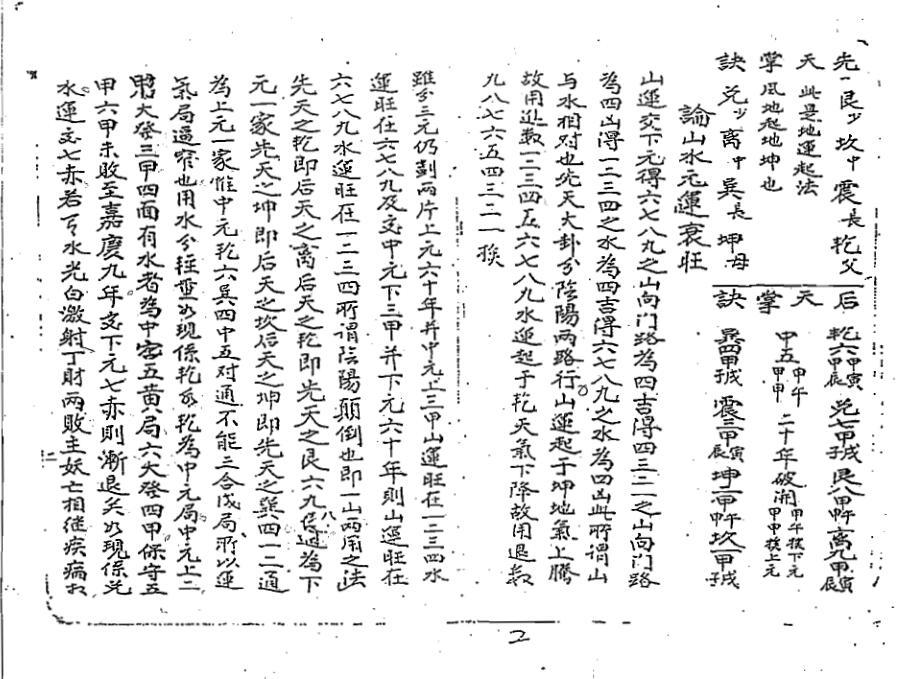 先一艮少坎中震長乾父
天此是地運起法
掌風地起地坤也
訣兌少离中巽長坤母
后乾六甲寅甲辰兌七甲戌甲子艮八甲申甲午离九甲寅甲辰
天中五甲午甲申二十年破開甲午接下元甲申接上元
掌
訣巽四甲子甲戌震三甲寅甲辰坤二甲申甲午坎一甲子甲戌
論山水元運衰旺
山運交下元得六七八九之山向門路為四吉得四三二一之山向門路
為四凶得一二三四之水為四吉得六七八九之水為四凶此所謂山
与水相对也先天大卦分陰陽兩路行山運起于坤地氣上騰
故用進数一二三四五六七八九水運起于乾天氣下降故用退数
九八七六五四三二一挨
雖分三元仍劃兩片上元六十年并中元上三甲山運旺在一二三四水
運旺在六七八九及交中元下三甲并下元六十年則山運旺在
六七八九水運旺在一二三四所謂陰陽顛倒也即一山兩用之法
先天之乾即后天之离后天之乾即先天之艮六九八通為下
元一家先天之坤即后天之坎后天之坤即先天之巽四一二通
為上元一家惟中元乾六巽四中五对通不能三合成局所以運
氣局逼窄也用水分輕重如現係乾乾為中元局中元上二
大發三甲四面有水者為中宮五黄局六大發四甲保守五
甲六甲未敗至嘉慶九年交下元七赤則漸退矣如現係兌
水運交七赤若有水光白激射丁財兩敗主妖亡相継疾病
二
2